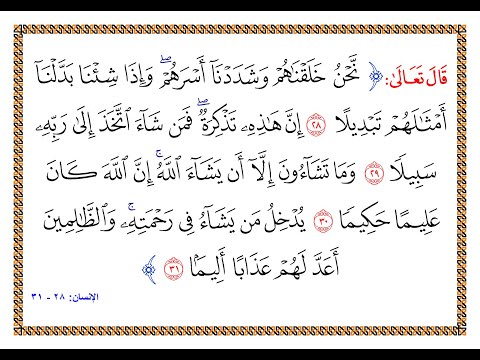 قَالَ تَعَالَىٰ: ﴿ نَّحۡنُ خَلَقۡنَٰهُمۡ وَشَدَدۡنَآ أَسۡرَهُمۡۖ وَإِذَا شِئۡنَا بَدَّلۡنَآ
أَمۡثَٰلَهُمۡ تَبۡدِيلًا ٢٨ إِنَّ هَٰذِهِۦ تَذۡكِرَةٞۖ فَمَن شَآءَ ٱتَّخَذَ إِلَىٰ رَبِّهِۦ
سَبِيلٗا ٢٩ وَمَا تَشَآءُونَ إِلَّآ أَن يَشَآءَ ٱللَّهُۚ إِنَّ ٱللَّهَ كَانَ
عَلِيمًا حَكِيمٗا ٣٠ يُدۡخِلُ مَن يَشَآءُ فِي رَحۡمَتِهِۦۚ وَٱلظَّٰلِمِينَ
أَعَدَّ لَهُمۡ عَذَابًا أَلِيمَۢا ٣١ ﴾
الإنسان: ٢٨ - ٣١